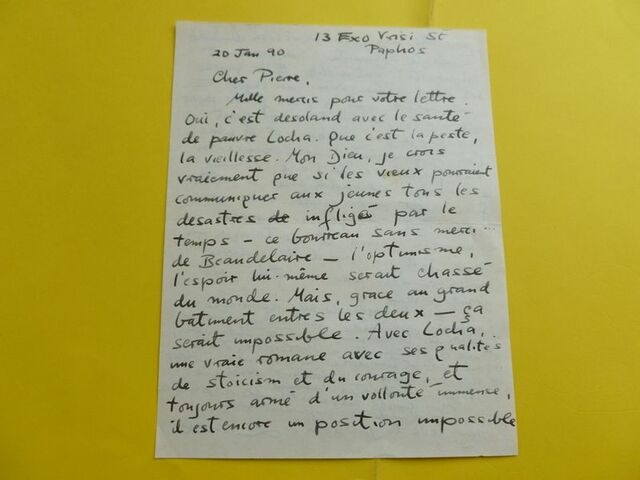 13 Exo Vrisi St
20 Jan 90 Paphos
Cher Pierre,
Mille mercis pour votre lettre.
Oui, c'est desoland avec le santé
de pauvre Locha. Que c'est la peste,
la vieillesse. Mon Dieu, je crois
vraiment que si les vieux pouvraient
communiquer aux jeunes tous les
desastres de infligé par le
temps – ce bourreau sans merci...
de Beaudelaire – l'optimisme,
l'espoir lui-même serait chassé
du monde. Mais, grace au grand
batiment entres les deux – ça
serait impossible. Avec Locha,
une vraie romane avec ses qualités
de stoicism et du courage, et
toujours armé d'un vollonté immense,
il est encore un position impossible